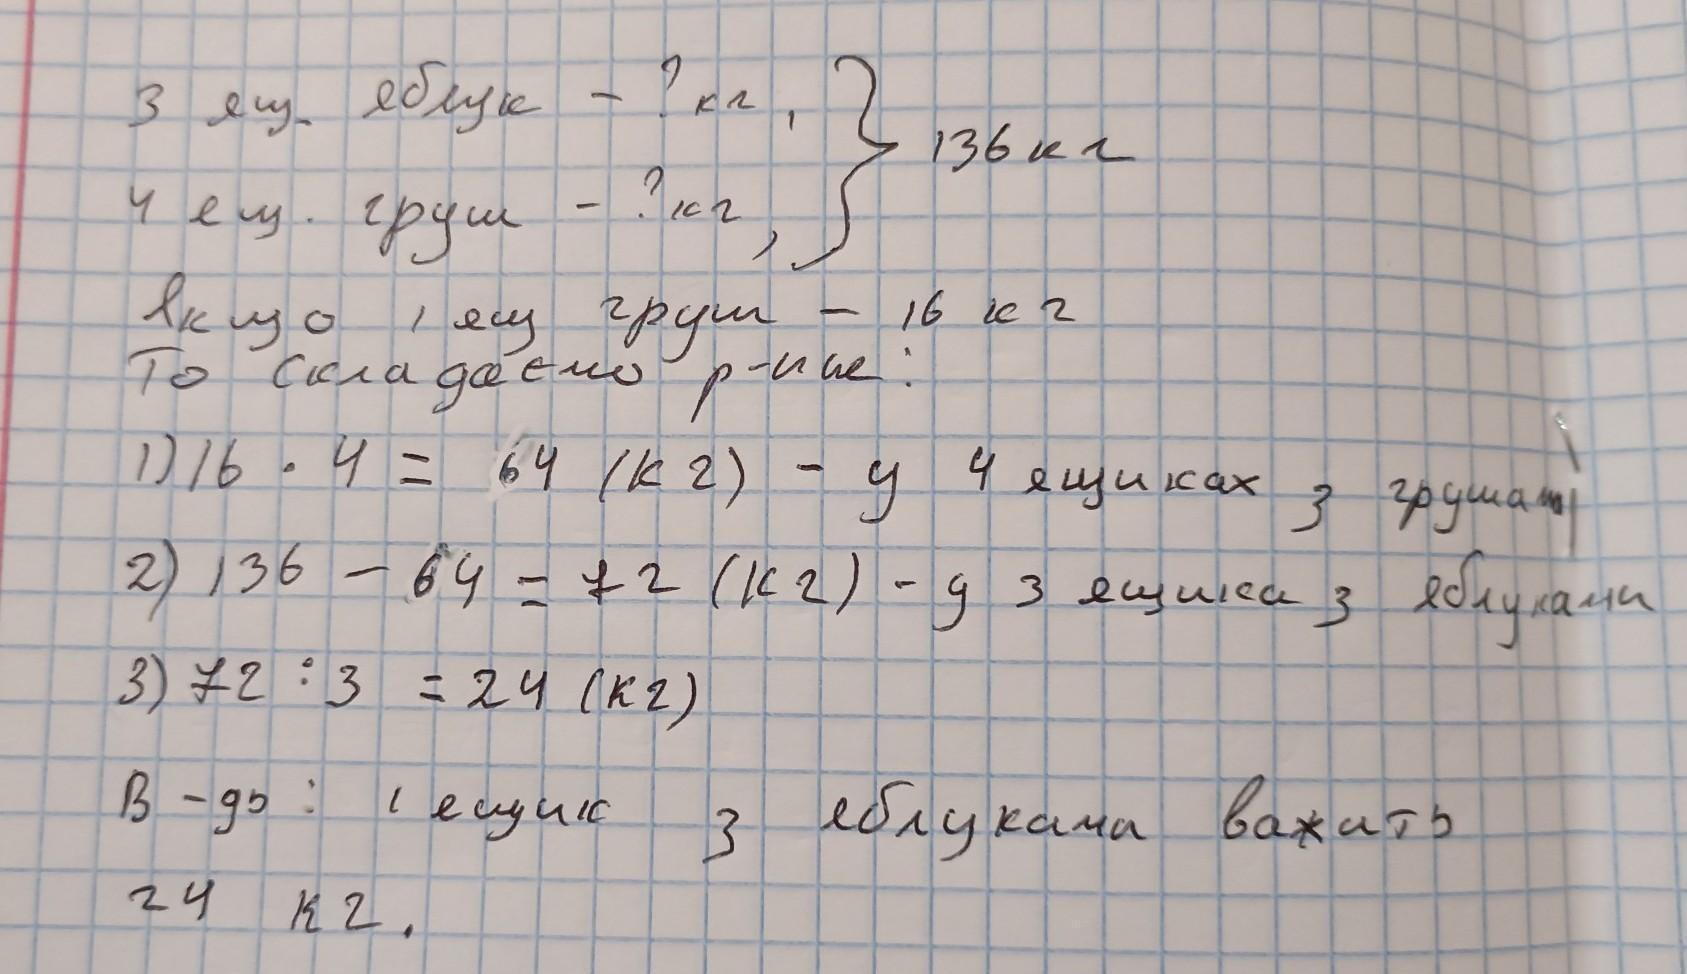 3 ящ. яблук - ? кг,
4 ящ. груш - ? кг,
} 136 кг
Якщо 1 ящ груш - 16 кг
То складаємо р-ння:
1) 16 · 4 = 64 (кг) - у 4 ящиках з грушами
2) 136 - 64 = 72 (кг) - у 3 ящика з яблуками
3) 72 : 3 = 24 (кг)
В-дь: 1 ящик з яблуками важить
24 кг.